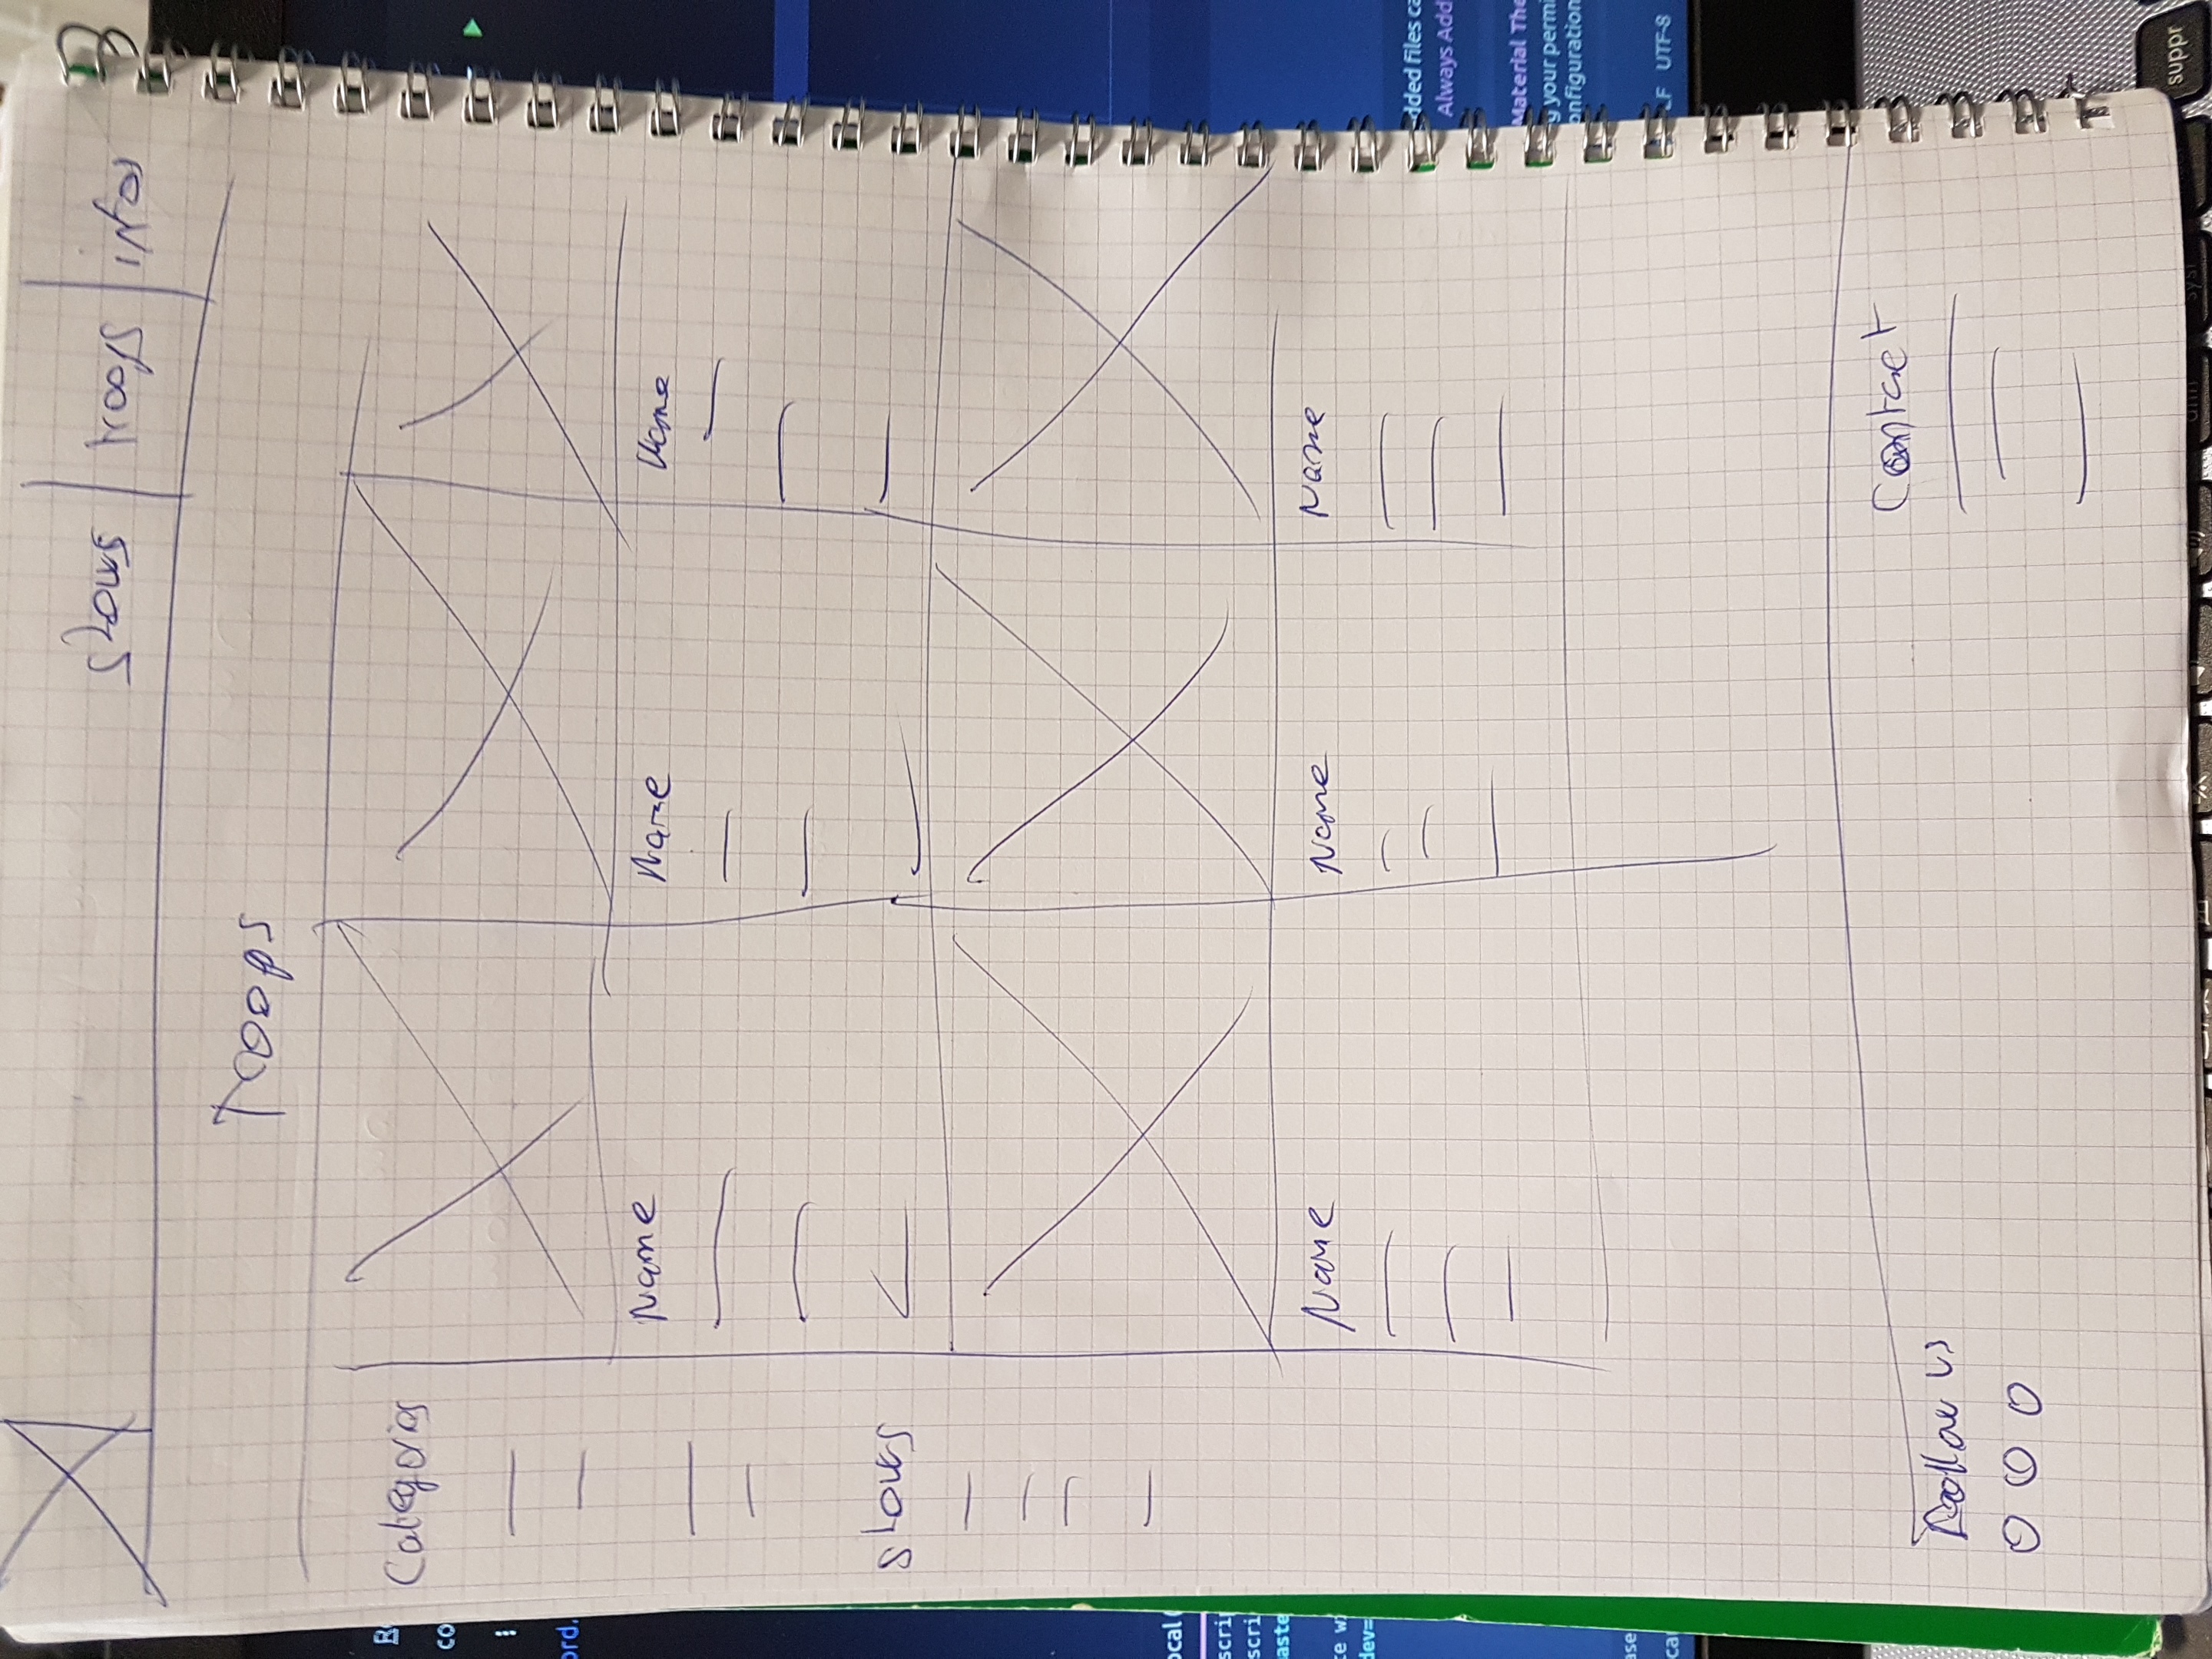 shows troops infos
Troops
Categories
Name Name Name
shows
Name Name Name
Contact
Follow us
B
co
ord.
ocal
scrip
scri
aste
te w
dev=
ase
dded files ca
Always Add
Material The
g your permi
onfiguration
LF UTF-8
suppr